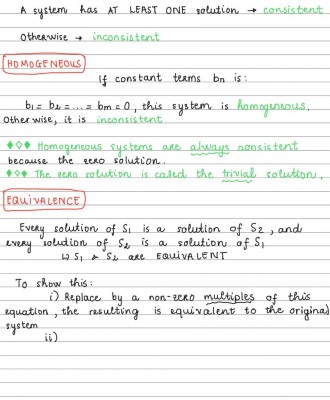 A system has AT LEAST ONE solution → consistent
Otherwise → inconsistent
HOMOGENEOUS
If constant terms bn is:
b1 = b2 = ... = bm = 0, this system is homogeneous.
Otherwise, it is inconsistent
♦◊♦ Homogeneous systems are always consistent
because the zero solution.
♦◊♦ The zero solution is called the trivial solution.
EQUIVALENCE
Every solution of S1 is a solution of S2, and
every solution of S2 is a solution of S1
↳ S1 & S2 are EQUIVALENT
To show this:
i) Replace by a non-zero multiples of this
equation, the resulting is equivalent to the original
system
ii)